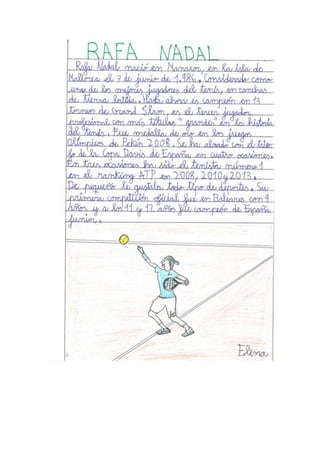 RAFA NADAL
Rafa Nadal nació en Manacor, en la isla de
Mallorca el 3 de junio de 1.986. Considerado como
uno de los mejores jugadores del tenis, en canchas
de tierra batida. Hasta ahora es campeón en 13
torneos de Grand Slam, es el tercer jugador
profesional con más títulos "grandes" en la historia
del tenis. Fue medalla de oro en los juegos
Olímpicos de Pekín 2008. Se ha alzado con el títu-
lo de la Copa Davis de España en cuatro ocasiones.
En tres ocasiones ha sido el tenista número 1
en el ranking ATP en 2008, 2010 y 2013.
De pequeño le gustaba todo tipo de deportes. Su
primera competición oficial fue en Baleares con 9
años y a los 11 y 12 años fue campeón de España
junior.
Elena